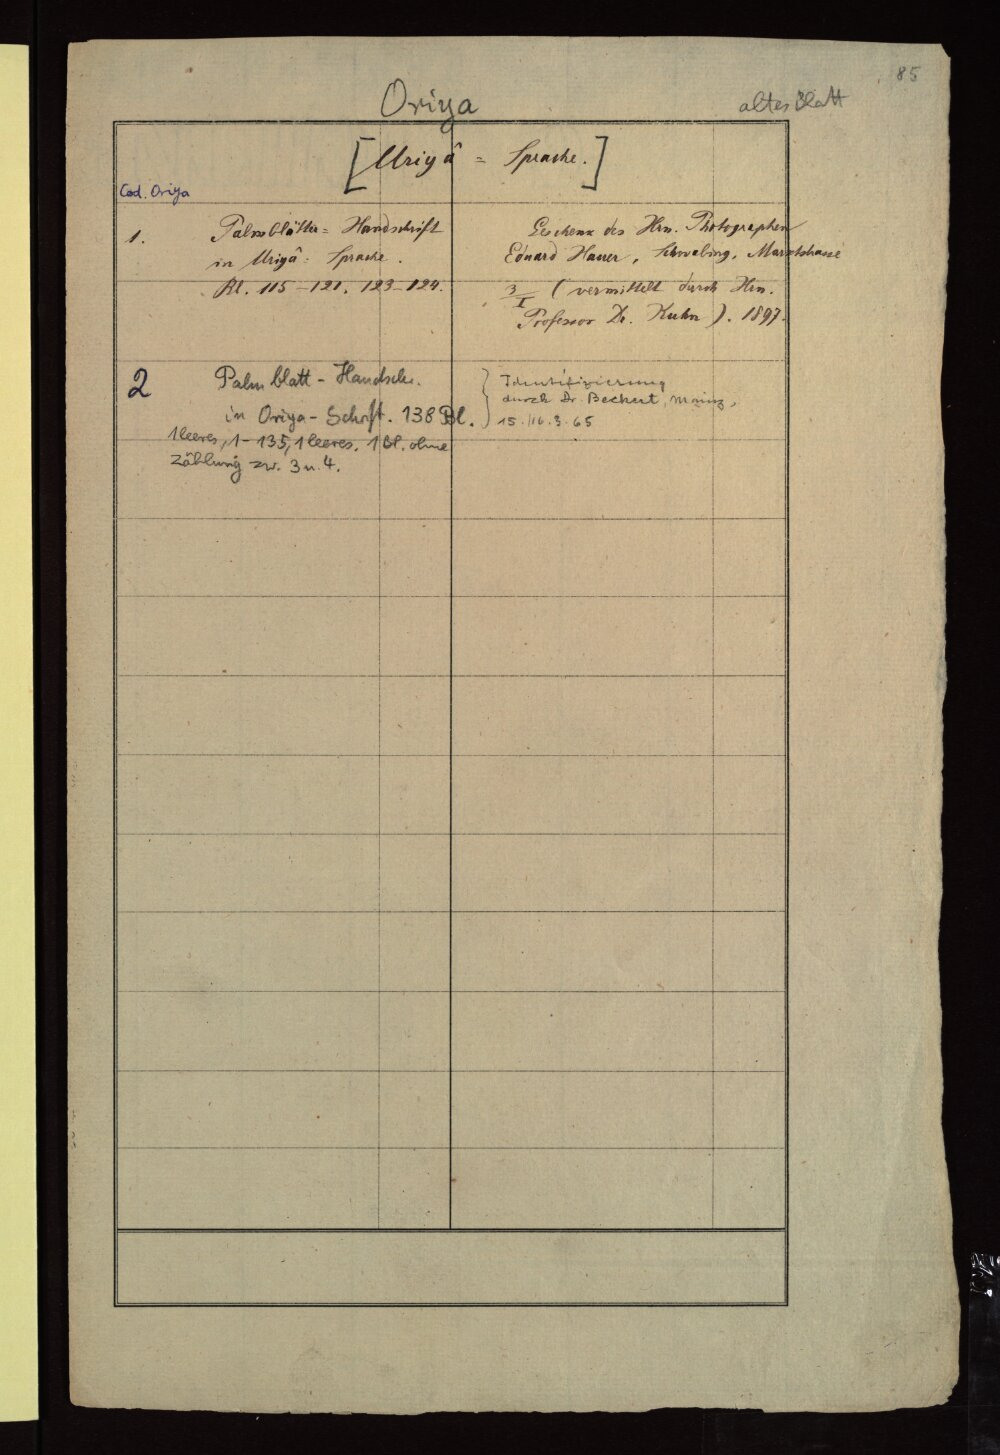 85
Oriya
altes Blatt
[Uriyâ = Sprache.]
Cod. Oriya
1.
Palmblätter = Handschrift
in Uriyâ = Sprache.
Bl. 115-121. 123-124.
Geschenk des Hrn. Photographen
Eduard Hauer, Schwabing, Marktstrasse
3/I (vermittelt durch Hrn.
Professor Dr. Kuhn). 1897.
2
Palmblatt - Handschr.
in Oriya - Schrift. 138 Bl.
1 leeres, 1-135, 1 leeres. 1 Bl. ohne
Zählung zw. 3 u. 4.
Identifizierung
durch Dr. Bechert, Mainz,
15./16.3.65